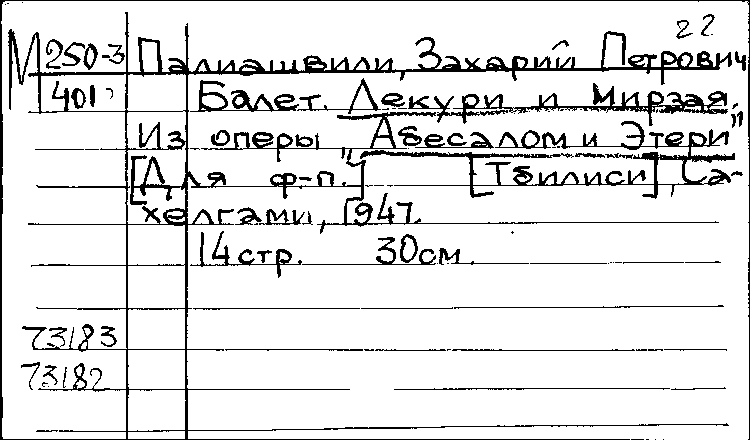 22
М 250-3 Палиашвили, Захарий Петрович
401 Балет. Лекури и мирзая.
Из оперы „Абесалом и Этери"
[Для ф-п.] [Тбилиси], Са-
хелгами, 1947.
14 стр. 30 см.
73183
73182